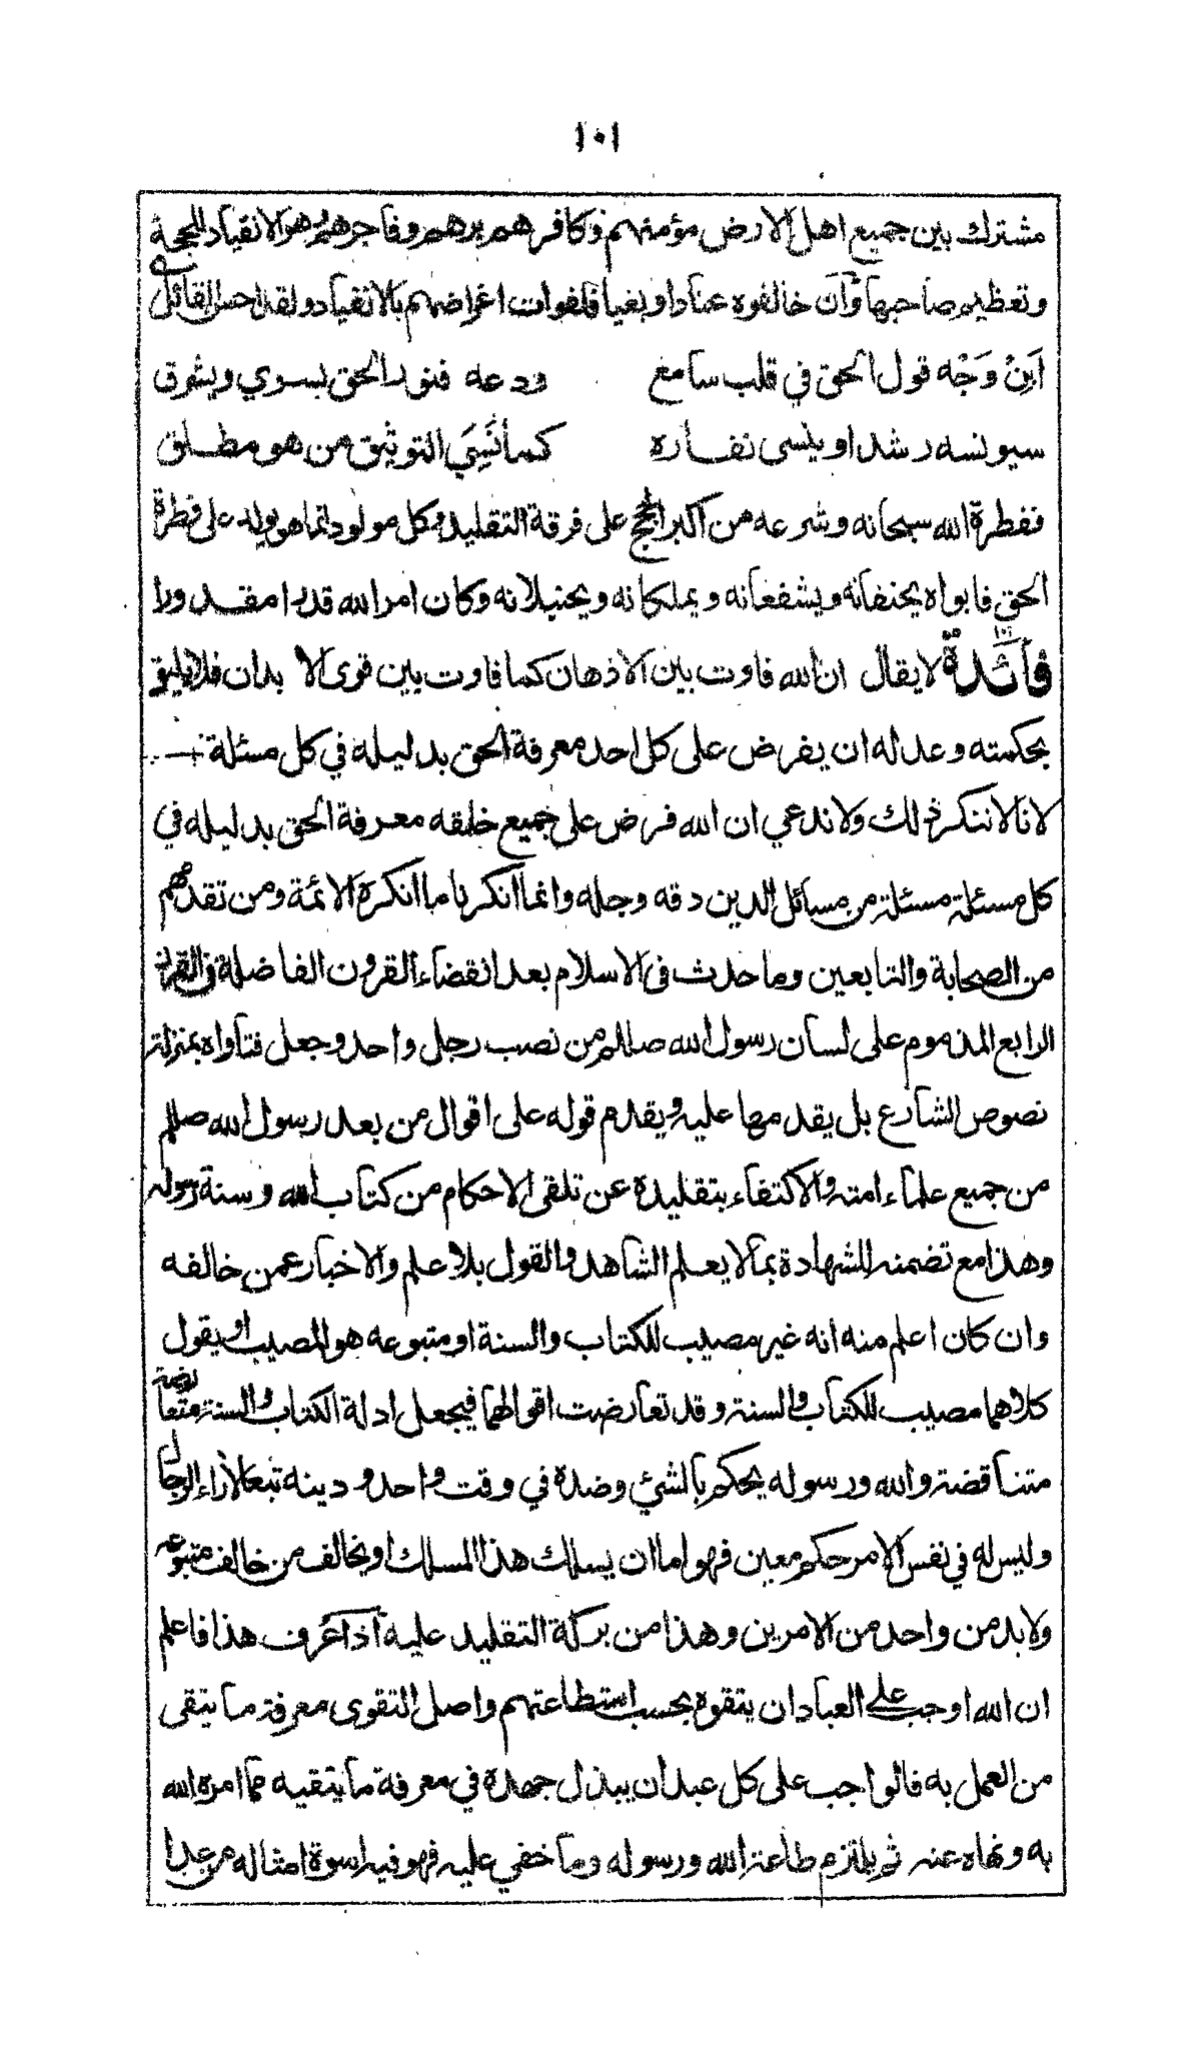 ١٠١
مشترك بين جميع اهل الارض مؤمنهم وكافرهم برهم وفاجرهم وهو الانقياد للحجة
وتعظيم صاحبها وان خالفوه عنادا وبغيا فلفوات اغراضهم بالانقياد ولقد احسن القائل
اَبِنْ وَجْه قول الحق في قلب سامع ودعه فنور الحق يسري ويشرق
سيونسه رشدا وينسى نفاره كما نَسِيَ التوثيق من هو مطلق
ففطرة الله سبحانه وشرعه من اكبر الحجج على فرقة التقليد وكل مولود انما هو يولد على فطرة
الحق فابواه يحنفانه ويشفعانه ويملكانه ويحنبلانه وكان امر الله قدرا مقدورا
فائدة لا يقال ان الله فاوت بين الاذهان كما فاوت بين قوى الابدان فلا يليق
بحكمته وعدله ان يفرض على كل احد معرفة الحق بدليله في كل مسئلة
لانا لا ننكر ذلك ولا ندعي ان الله فرض على جميع خلقه معرفة الحق بدليله في
كل مسئلة مسئلة من مسائل الدين دقه وجله وانما انكرنا ما انكره الائمة ومن تقدمهم
من الصحابة والتابعين وما حدث في الاسلام بعد انقضاء القرون الفاضلة في القرن
الرابع المذموم على لسان رسول الله صللم من نصب رجل واحد وجعل فتاواه بمنزلة
نصوص الشارع بل يقدمها عليه ويقدم قوله على اقوال من بعد رسول الله صللم
من جميع علماء امته والاكتفاء بتقليده عن تلقى الاحكام من كتاب الله وسنة رسوله
وهذا مع تضمنه للشهادة بما لا يعلم الشاهد والقول بلا علم والاخبار عمن خالفه
وان كان اعلم منه انه غير مصيب للكتاب والسنة او متبوعه هو المصيب او يقول
كلاهما مصيب للكتاب والسنة وقد تعارضت اقوالهما فيجعل ادلة الكتاب والسنة متعارضة
متناقضة والله ورسوله يحكم بالشئ وضده في وقت واحد ودينه تبعا لآراء الرجال
وليس له في نفس الامر حكم معين فهو اما ان يسلك هذا المسلك او يخالف من خالف متبوعه
ولا بد من واحد من الامرين وهذا من بركة التقليد عليه اذا عرف هذا فاعلم
ان الله اوجب على العباد ان يتقوه بحسب استطاعتهم واصل التقوى معرفة ما يتقى
من العمل به فالواجب على كل عبد ان يبذل جهده في معرفة ما يتقيه مما امره الله
به ونهاه عنه ثم يلتزم طاعة الله ورسوله وما خفي عليه فهو فيه اسوة امثاله من عدا